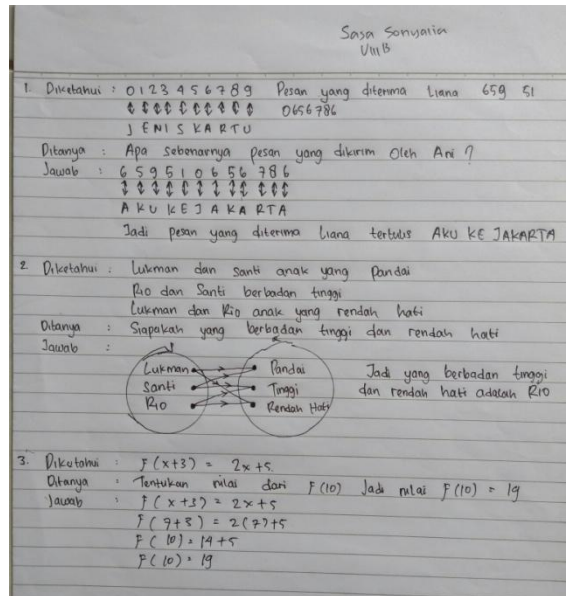 Sasa Sonyalia
VIII B
1. Diketahui : 0 1 2 3 4 5 6 7 8 9 Pesan yang diterima Liana 659 51
0656786
J E N I S K A R T U
Ditanya : Apa sebenarnya pesan yang dikirim oleh Ani ?
Jawab : 6 5 9 5 1 0 6 5 6 7 8 6
A K U K E J A K A R T A
Jadi pesan yang diterima Liana tertulis AKU KE JAKARTA
2 Diketahui : Lukman dan Santi anak yang Pandai
Rio dan Santi berbadan tinggi
Lukman dan Rio anak yang rendah hati
Ditanya : Siapakah yang berbadan tinggi dan rendah hati
Jawab :
Lukman Pandai Jadi yang berbadan tinggi
Santi Tinggi dan rendah hati adalah RIO
RIO Rendah Hati
3. Dikutahui : F(x+3) = 2x+5
Ditanya : Tentukan nilai dari F(10) Jadi nilai F(10) = 19
Jawab : F(x+3) = 2x+5
F(7+3) = 2(7)+5
F(10) = 14+5
F(10) = 19